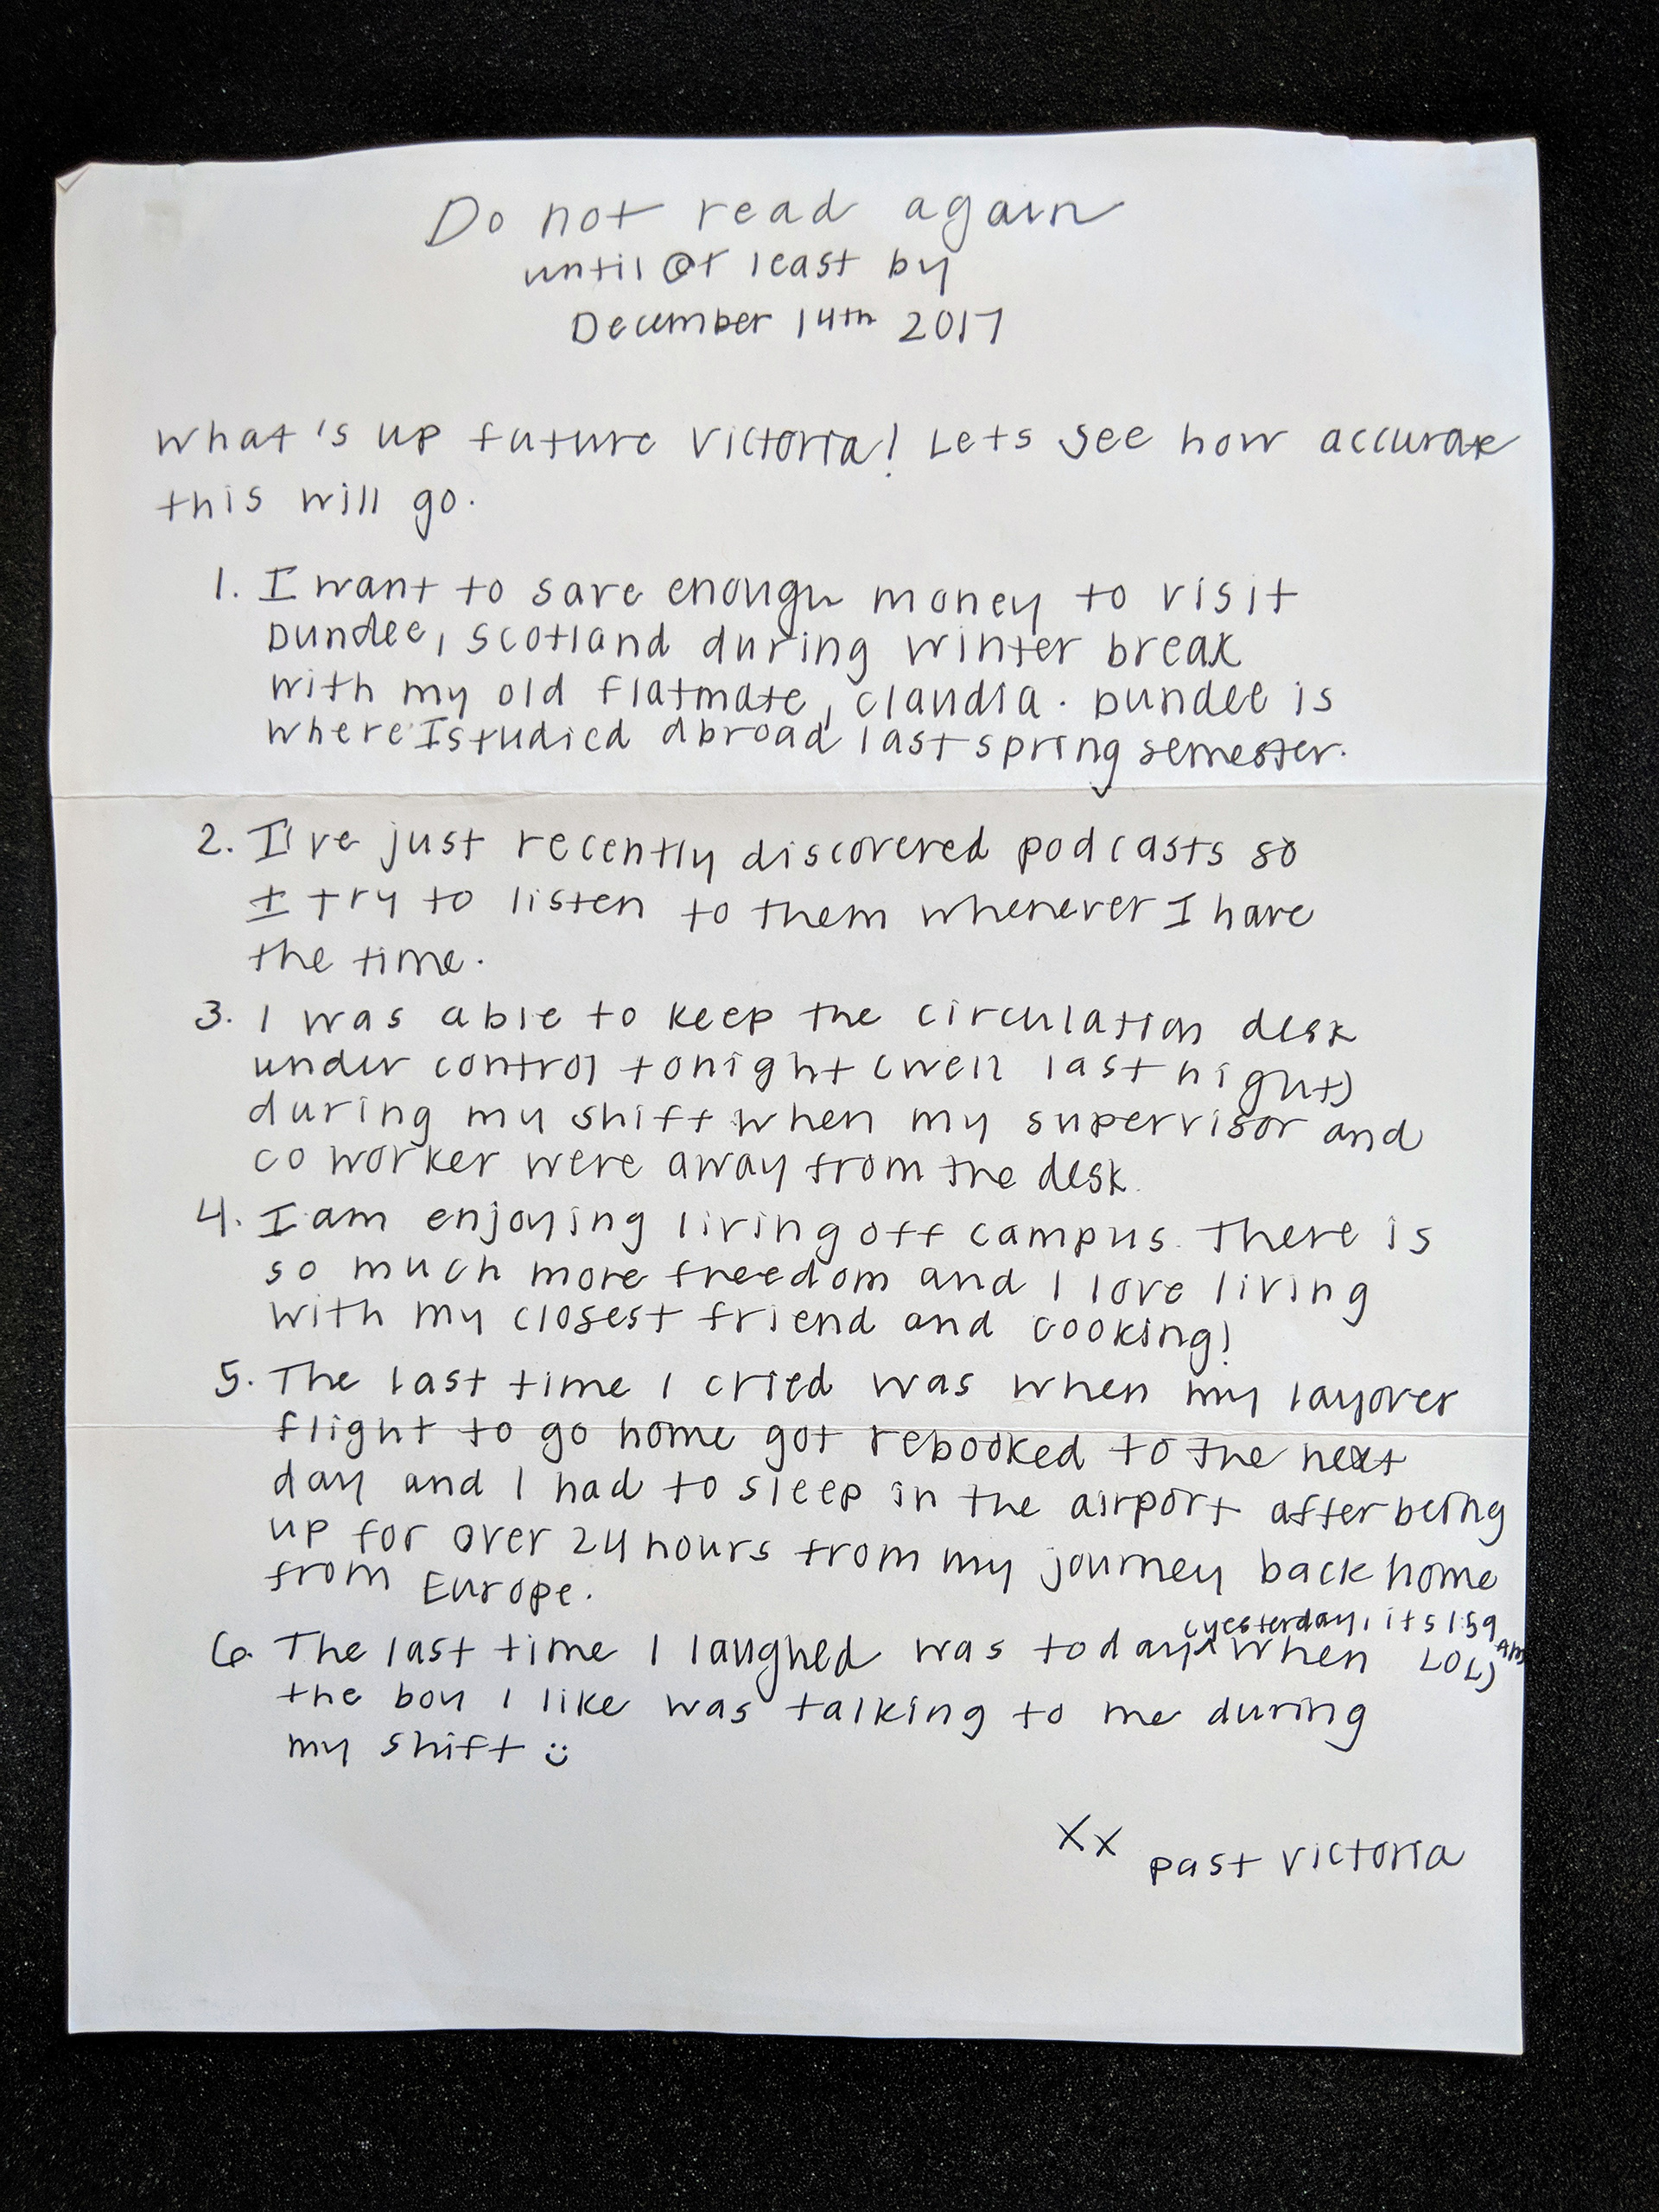 Do not read again
until @t least by
December 14th 2017
What's up future Victoria! Lets see how accurate
this will go.
1. I want to save enough money to visit
Dundee, Scotland during winter break
with my old flatmate, Claudia. Dundee is
where I studied abroad last spring semester.
2. I've just recently discovered podcasts so
I try to listen to them whenever I have
the time.
3. I was able to keep the circulation desk
under control tonight (well last night)
during my shift when my supervisor and
co worker were away from the desk.
4. I am enjoying living off campus. There is
so much more freedom and I love living
with my closest friend and cooking!
5. The last time I cried was when my layover
flight to go home got rebooked to the next
day and I had to sleep in the airport after being
up for over 24 hours from my journey back home
from Europe.
(yesterday, its 1:59 AM
6. The last time I laughed was today ^ when LOL)
the boy I like was talking to me during
my shift :)
xx past Victoria